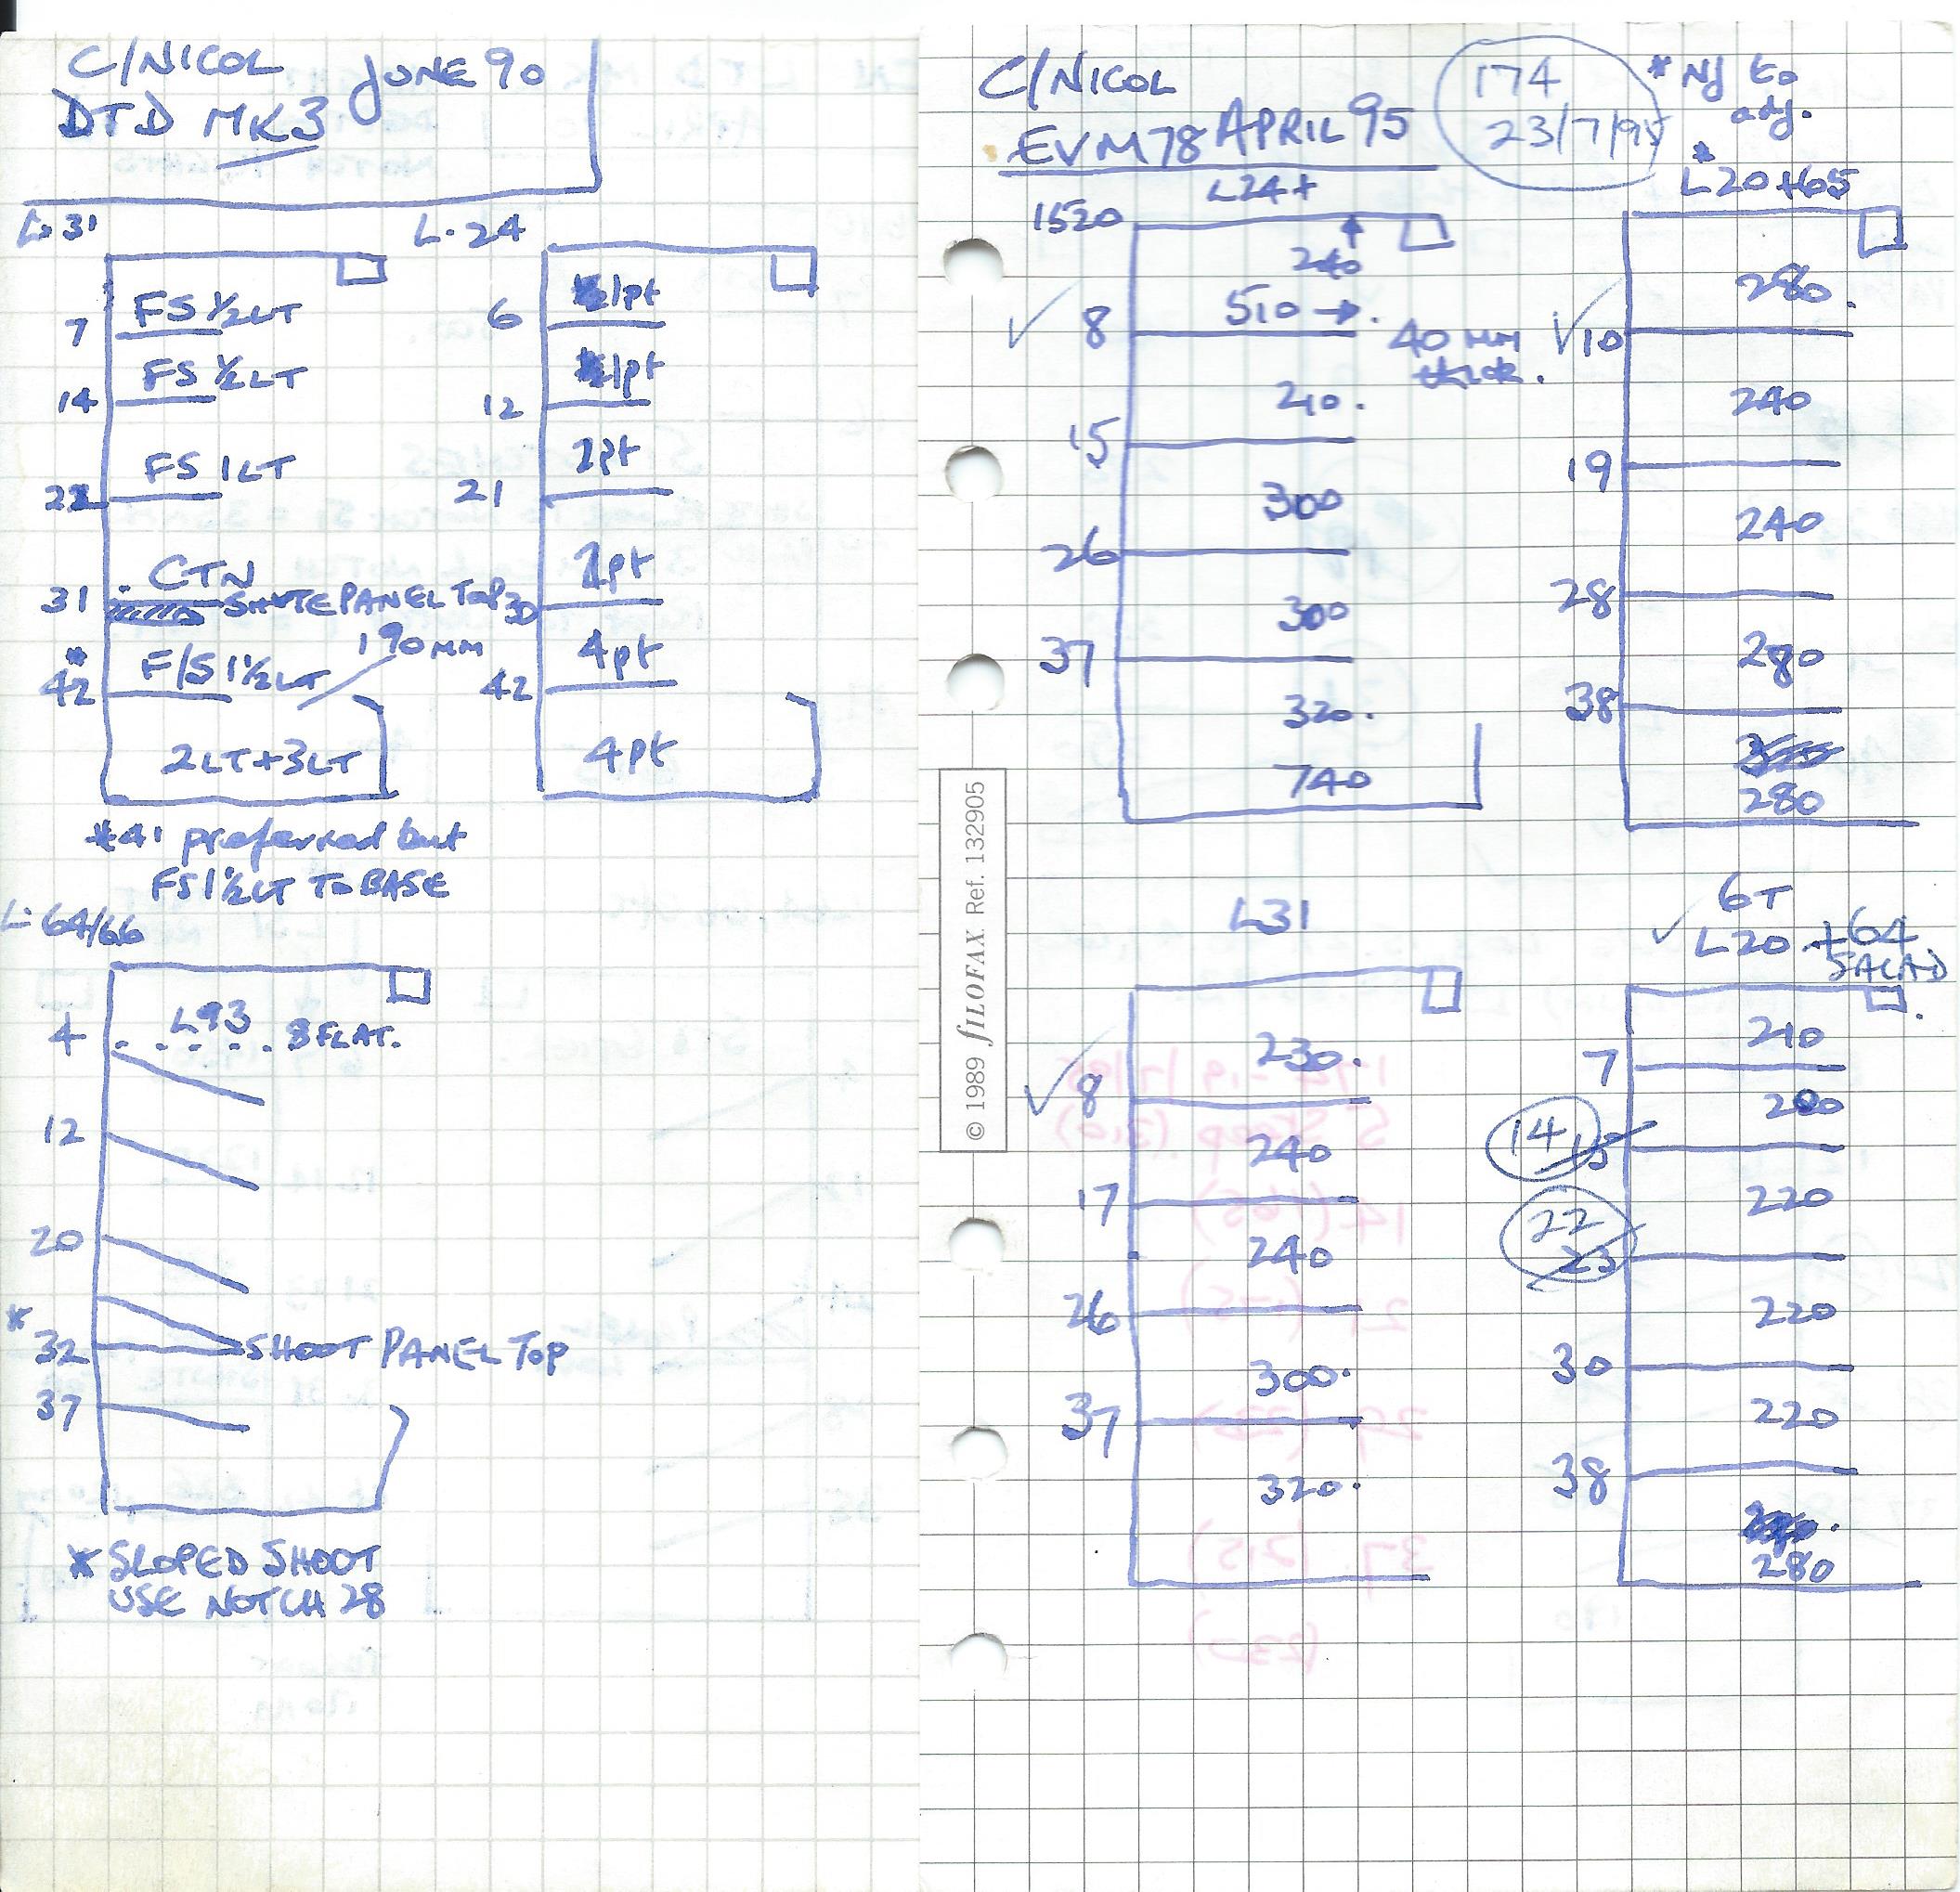 C/NICOL JUNE 90
DTD MK3
L.31
FS 1/2LT
7
FS 1/2LT
14
FS 1LT
22
CTN
31 SHUTE PANEL TOP
190MM
*
42 F/S 1 1/2LT
2LT+3LT
*41 preferred but
FS 1 1/2LT TO BASE
L.24
1pt
6
1pt
12
2pt
21
2pt
30
4pt
42
4pt
L.64/66
4 L93 8 FLAT.
12
20
*
32 SHOOT PANEL TOP
37
* SLOPED SHOOT
USE NOTCH 28
C/NICOL
EVM78 APRIL 95
174
23/7/95
* NJ to
adj.
L24+
1520
240
510 →.
8 40 MM
thick.
210.
15
300
26
300
37
320.
740
*
L20+65
280.
10
240
19
240
28
280
38
280
© 1989 FILOFAX Ref. 132905
L31
230.
8
240
17
240
26
300.
37
320.
6T
L20 +64
SALAD
210
7
200
14 15
220
22 23
220
30
220
38
280